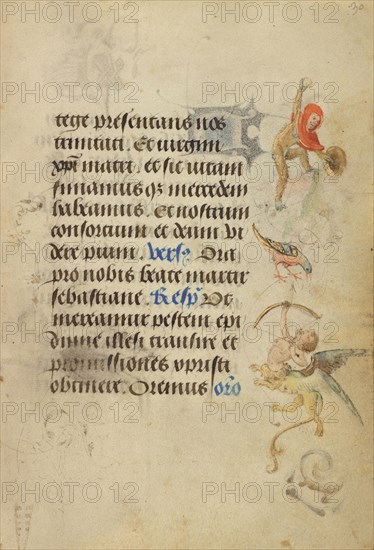 tege presentans nos
trinitati. Et virgini
xpi matri. et sic vitam
finiamus qz mercedem
habeamus. Et nostrum
consortium et deum vi
dere pium. vers9 Ora
pro nobis beate martir
sebastiane Resp Vt
mereamur pestem epi
dimie illesi transire et
promissiones xpristi
obtinere. Oremus oro